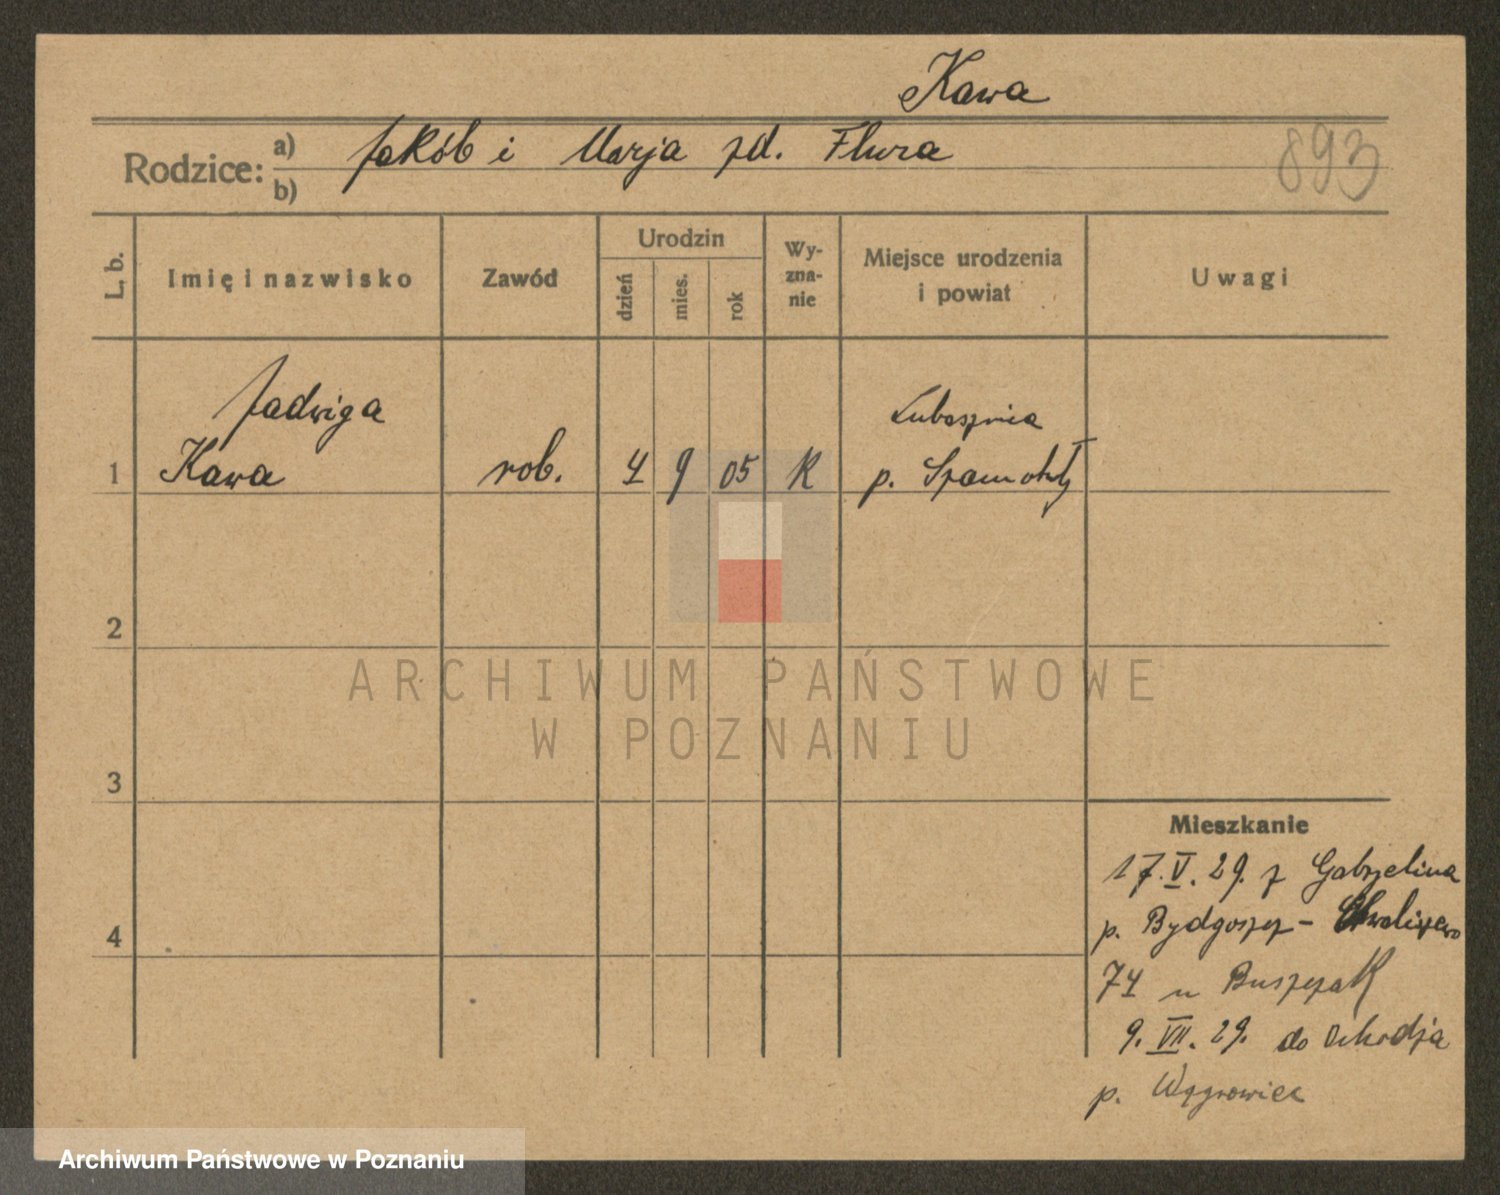 Kawa
Rodzice: a) Jakób i Marja zd. Flura
b)
893
L. b.
Imię i nazwisko
Zawód
Urodzin
dzień
mies.
rok
Wy-
zna-
nie
Miejsce urodzenia
i powiat
Uwagi
Jadwiga
Lubosznica
1 Kawa rob. 4 9 05 K p. Szamotuły
2
ARCHIWUM PAŃSTWOWE
W POZNANIU
3
Mieszkanie
17.V.29. z Gabrjelina
p. Bydgoszcz - Chwaliszewo
4
74 u Buszczak
9. VII. 29. do
p. Wągrowiec
Archiwum Państwowe w Poznaniu